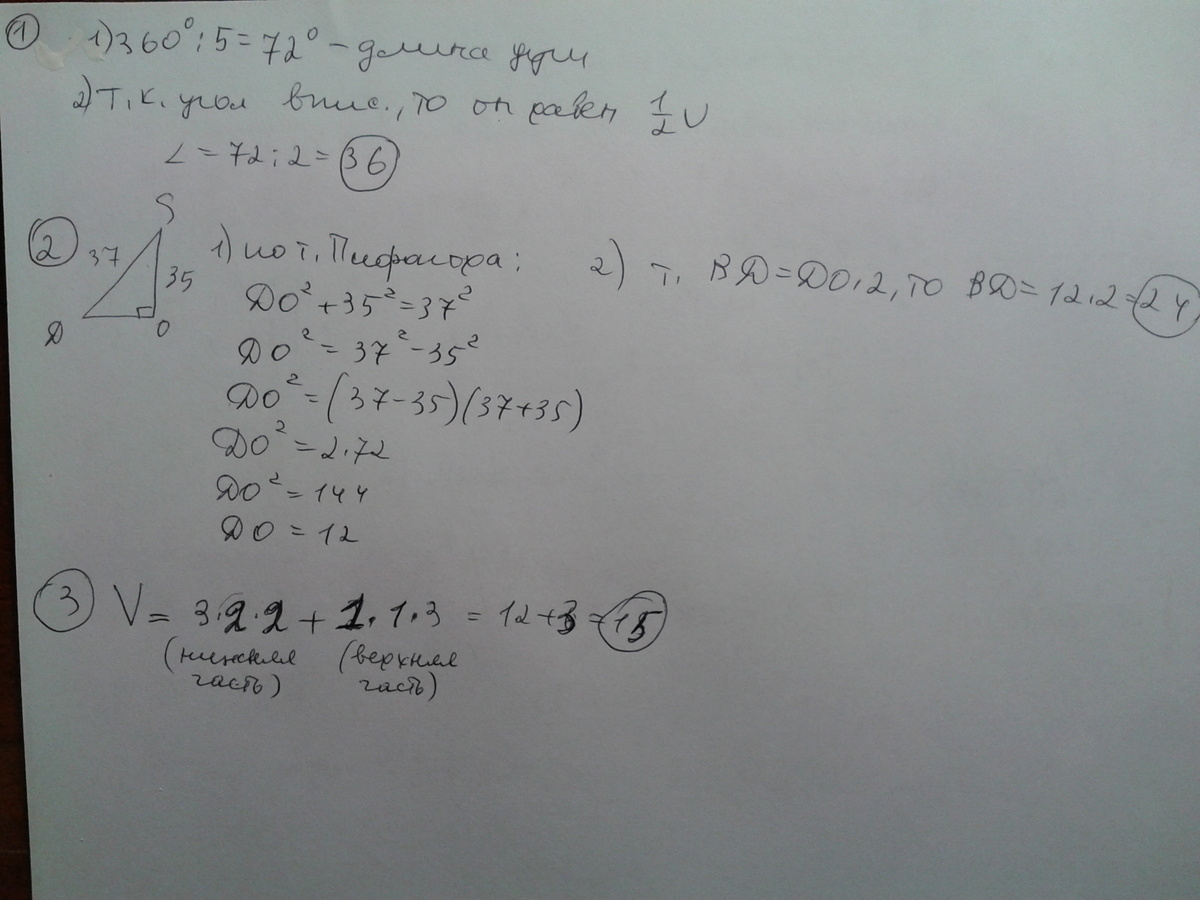 1 1) 360° : 5 = 72° – длина дуги
2) Т.к. угол впис., то он равен 1/2 ∪
∠ = 72 : 2 = 36
2
S
37
35
Д
О
1) по т. Пифагора:
ДО² + 35² = 37²
ДО² = 37² – 35²
ДО² = (37–35)(37+35)
ДО² = 2·72
ДО² = 144
ДО = 12
2) т. ВД = ДО·2, то ВД = 12·2 = 24
3 V = 3·2·2 + 1·1·3 = 12+3 = 15
(нижняя часть) (верхняя часть)